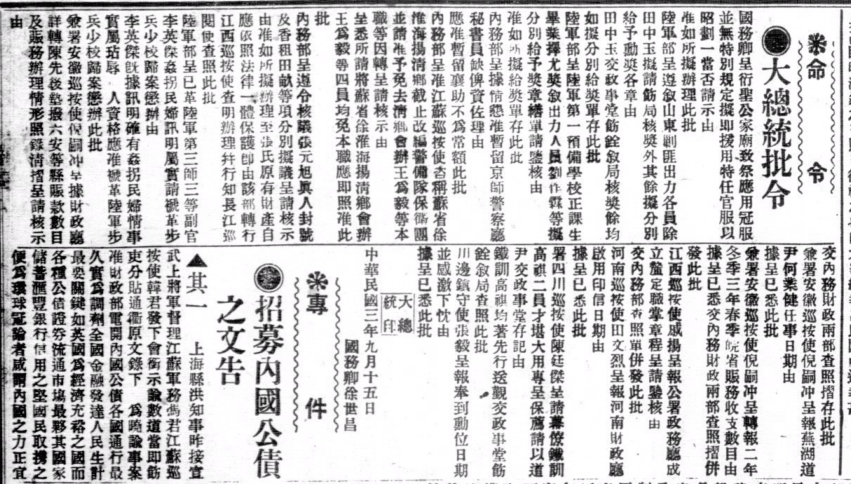 命令
大總統批令
國務卿呈衍聖公家廟致祭應用冠服
並無特別規定擬即援用特任官服以
昭劃一當否請示由
准如所擬辦理此批
陸軍部呈遵叙山東剿匪出力各員除
田中玉擬請飭局核獎外其餘擬分別
給予勳獎各章由
田中玉交政事堂飭銓叙局核獎餘均
如擬分別給予獎章單存此批
陸軍部呈陸軍第一預備學校正課生
畢業擇尤獎叙出力人員劉作霖等擬
分別給予獎章繕單請鑒核由
准如所擬給獎單存此批
內務部呈據情懇准暫留京師警察廳
秘書員缺俾資佐理由
應准暫留襄助不爲常額此批
內務部呈准江蘇巡按使咨稱蘇省徐
淮海揚清鄉截止改編警備隊保衛團
並請准予免去清鄉會辦王爲毅等本
職等因轉呈請核示由
呈悉所請將蘇省徐淮海揚清鄉會辦
王爲毅等四員均免本職應即照准此
批
內務部呈遵令核議張元旭眞人封號
及香租田畝等項分別擬議呈請核示
由准如所擬辦理至張氏原有財產自
應依照法律一體保護即由該部轉行
江西巡按使查明辦理并行知長江巡
閱使查照此批
陸軍部呈已革陸軍第三師三等副官
李英傑姦拐民婦訊明屬實請褫革步
兵少校歸案懲辦由
李英傑旣據訊明確有姦拐民婦情事
實屬玷辱 人資格應准褫革陸軍步
兵少校歸案懲辦此批
兼署安徽巡按使倪嗣冲呈據財政廳
詳轉陳先後墊撥六安等縣賑款數目
及賑務辦理情形照錄清摺呈請核示
由
交內務財政兩部查照摺存此批
兼署安徽巡按使倪嗣冲呈報蕪湖道
尹何業健任事日期由
據呈已悉此批
兼署安徽巡按使倪嗣冲呈轉報二年
冬季三年春季皖省賑務收支數目由
據呈已悉交內務財政兩部查照摺併
發此批
江西巡按使戚揚呈報公署政務廳成
立釐定職掌章程呈請鑒核由
交內務部查照單併發此批
河南巡按使田文烈呈報河南財政廳
啟用印信日期由
據呈已悉此批
署四川巡按使陳廷傑呈請幕僚鐵訓
高祺二員才堪大用專呈保薦請以道
尹交政事堂存記由
鐵訓高祺均著先行送觀交政事堂飭
銓叙局查照此批
川邊鎭守使張毅呈報奉到動位日期
並感激下忱由
據呈已悉此批
大總統印
中華民國三年九月十五日
國務卿徐世昌
專件
招募內國公債之文告
▲其一 上海縣洪知事昨接宣
武上將軍督理江蘇軍務馮君江蘇巡
按使韓君發下會銜示諭數道當即飭
吏分貼通衢原文錄下 爲曉諭事案
准財政部電開內國公債各國通行最
久實爲調劑全國金融發達人民生計
最要關鍵如英國爲經濟充裕之國而
各種公債證券流通市塲最夥其國家
儲蓄滙豐銀行信用之堅國民取携之
便爲環球冠論者咸謂內國之力正宜